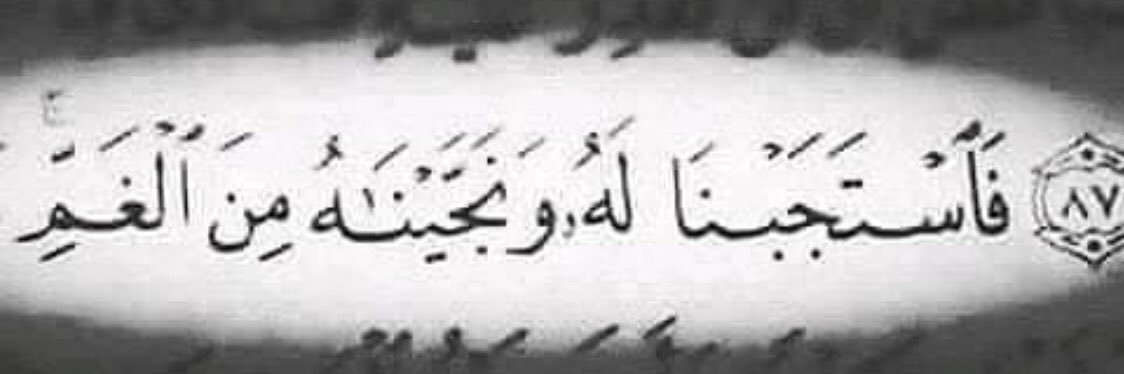 ٨٧ فَٱسْتَجَبْنَا لَهُۥ وَنَجَّيْنَـٰهُ مِنَ ٱلْغَمِّ